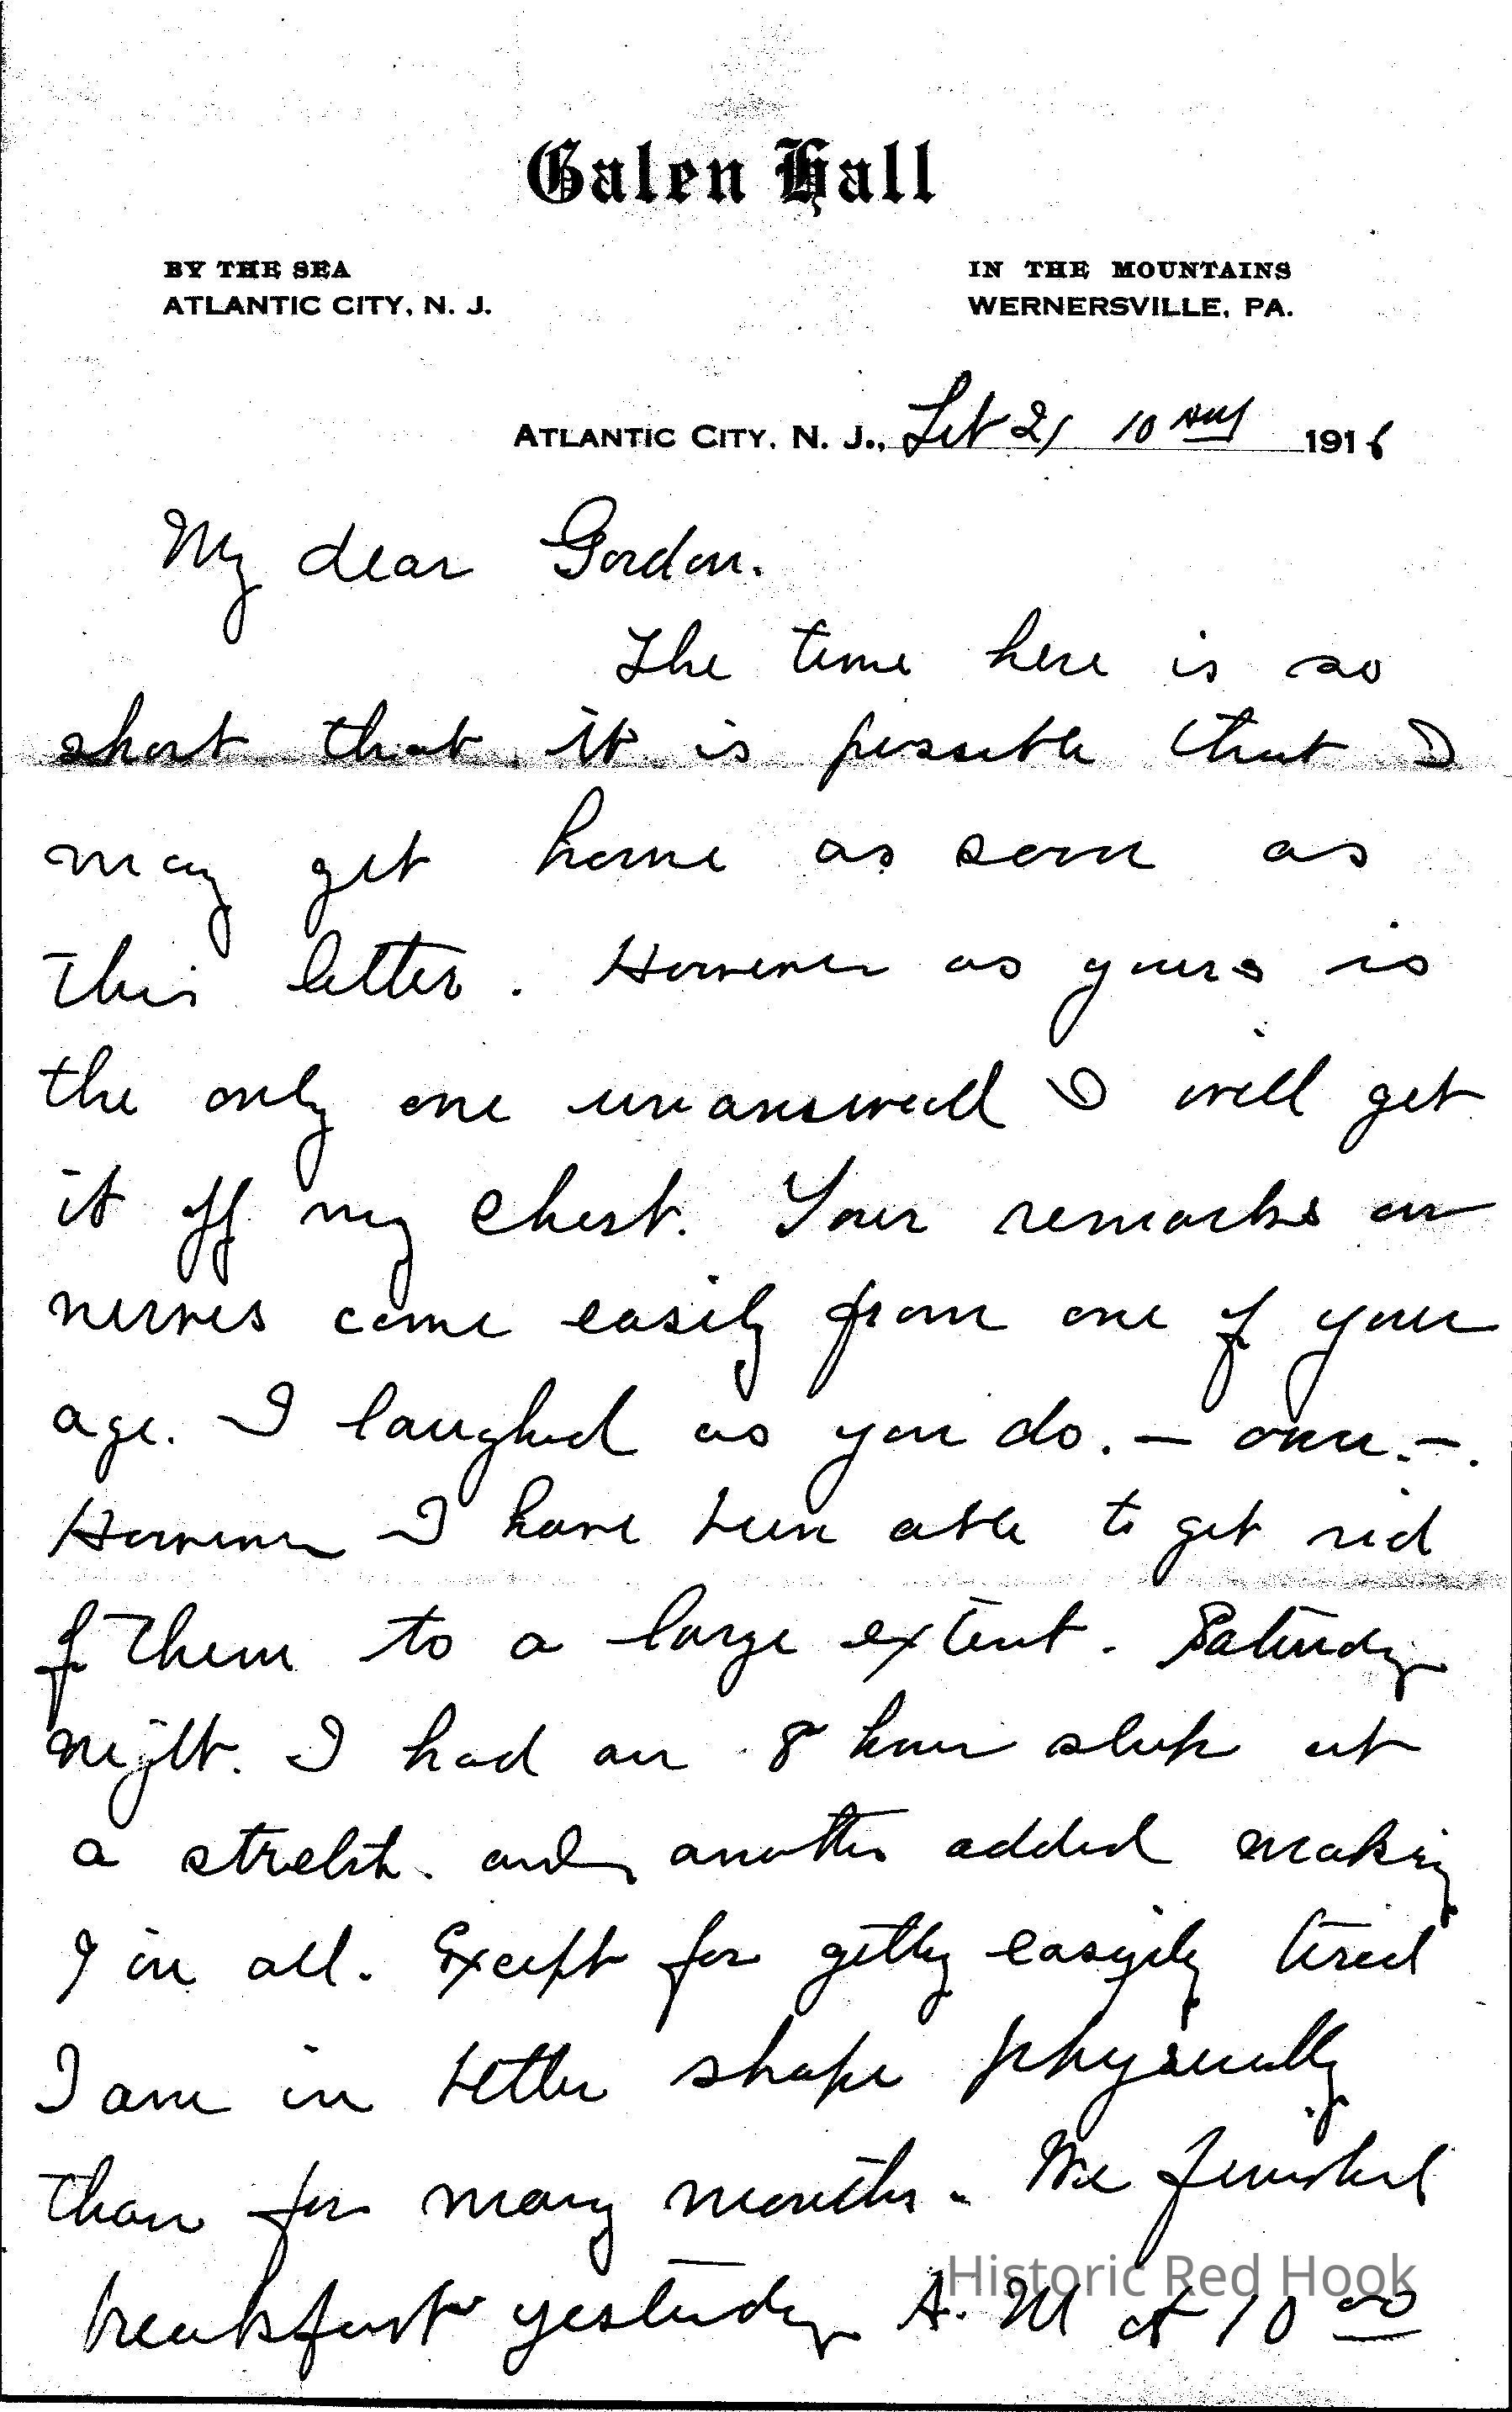 Galen Hall
BY THE SEA
ATLANTIC CITY, N. J.
IN THE MOUNTAINS
WERNERSVILLE, PA.
ATLANTIC CITY, N. J., 21 10 AM 1916
My dear Gordon.
The time here is so
short that it is possible that I
may get home as soon as
this letter. However as yours is
the only one unanswered I will get
it off my chest. Your remarks on
nerves come easily from one of your
age. I laughed as you do. — once. —.
However I have been able to get rid
of them to a large extent. Saturday
night. I had an 8 hour sleep at
a stretch. and another added making
9 in all. Except for getting easily tired
I am in better shape physically
than for many months. We finished
breakfast yesterday A. M at 10 00
Historic Red Hook